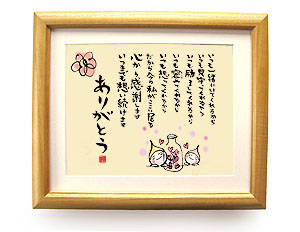 いつも一緒にいてくれるから
いつも見守ってくれるから
いつも励ましてくれるから
いつも
いつも想ってくれるから
だから今の私がここに居る
心から感謝します
いつまでも想い続けます
ありがとう